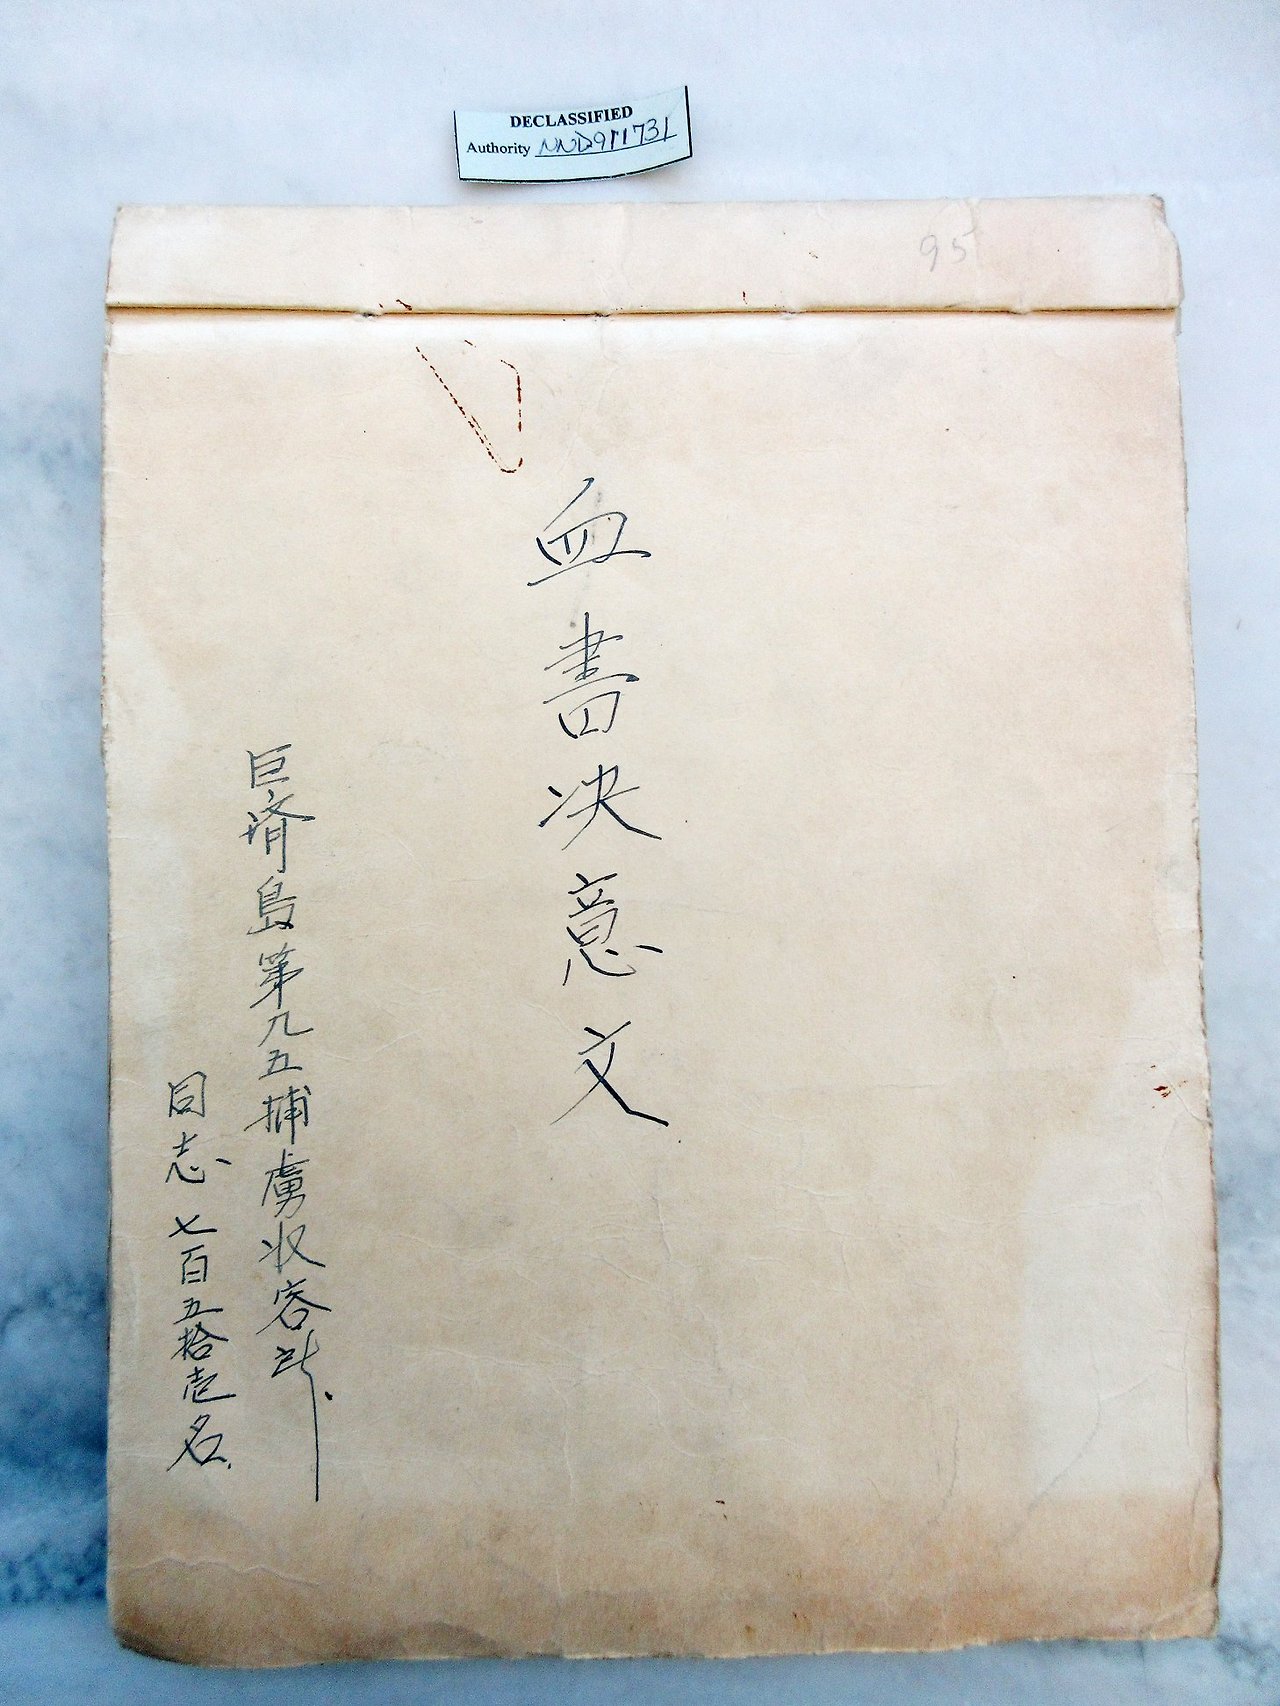 DECLASSIFIED
Authority NND911731
95
血書决意文
巨済島第九五捕虜収容所
同志 七百五拾壱名